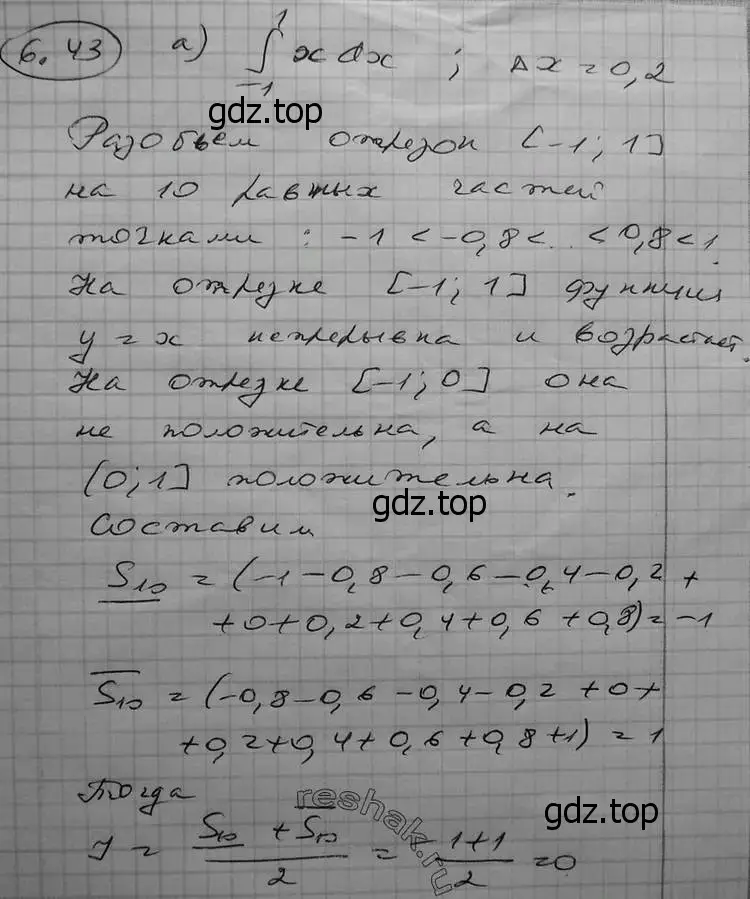 6.43 а) ∫₋₁¹ x dx ; Δx = 0,2
gdz.top
Разобьем отрезок [-1; 1]
на 10 равных частей
точками : -1 < -0,8 < .. < 0,8 < 1.
На отрезке [-1; 1] функция
y = x непрерывна и возрастает.
На отрезке [-1; 0] она
не положительна, а на
[0; 1] положительна.
gdz.top
Составим
S₁₀ = (-1 - 0,8 - 0,6 - 0,4 - 0,2 +
+ 0 + 0,2 + 0,4 + 0,6 + 0,8) = -1
S₁₀ = (-0,8 - 0,6 - 0,4 - 0,2 + 0 +
+ 0,2 + 0,4 + 0,6 + 0,8 + 1) = 1
Тогда
reshak.ru
gdz.top
I = (S₁₀ + S₁₀)/2 = (-1+1)/2 = 0